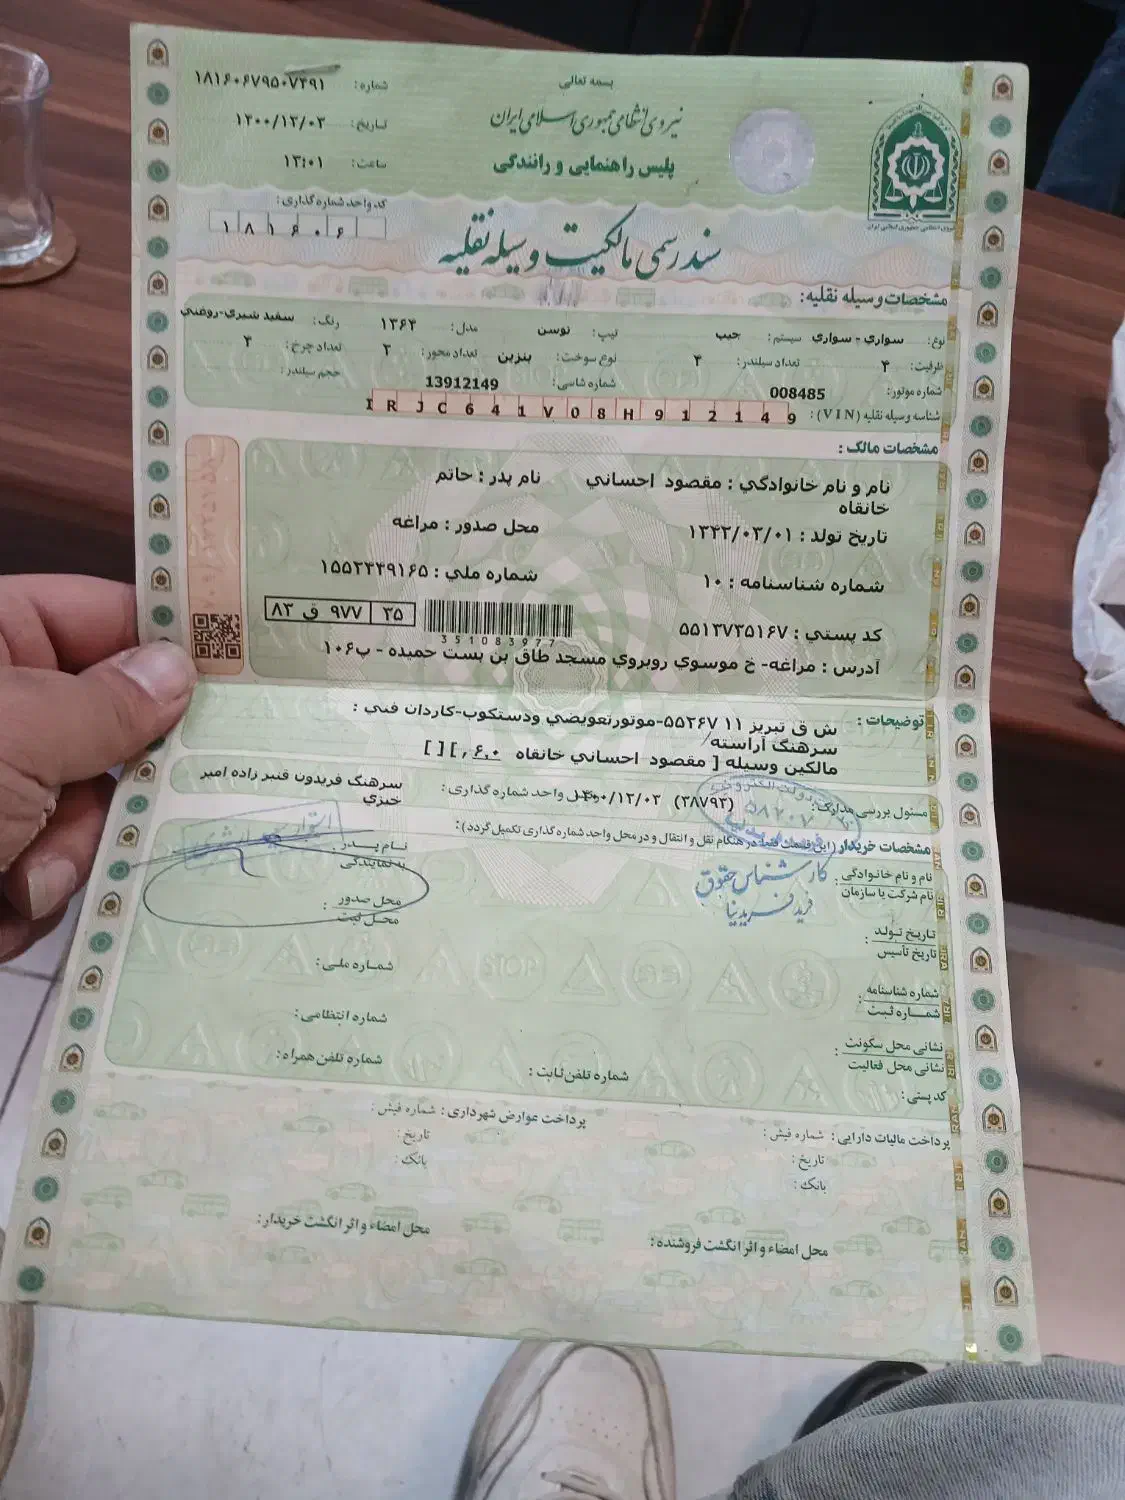 بسمه تعالی
نیروی انتظامی جمهوری اسلامی ایران
پلیس راهنمایی و رانندگی
شماره: ۱۸۱۶۰۶۷۹۵۰۷۳۹۱
تاریخ: ۱۴۰۰/۱۲/۰۳
ساعت: ۱۳:۰۱
کد واحد شماره گذاری:
۱۸۱۶۰۶
سند رسمی مالکیت وسیله نقلیه
مشخصات وسیله نقلیه:
نوع: سواری - سواری سیستم: جیپ تیپ: توسن مدل: ۱۳۶۴ رنگ: سفید شیری-روغنی
ظرفیت: ۴ تعداد سیلندر: ۴ نوع سوخت: بنزین تعداد محور: ۲ تعداد چرخ: ۴
شماره موتور: 008485 شماره شاسی: 13912149 حجم سیلندر:
شناسه وسیله نقلیه (VIN): IRJC641V08H912149
مشخصات مالک:
نام و نام خانوادگي : مقصود احساني خانقاه نام پدر : حاتم
تاریخ تولد : ۱۳۴۲/۰۳/۰۱ محل صدور : مراغه
شماره شناسنامه : ۱۰ شماره ملي : ۱۵۵۲۳۳۹۱۶۵
کد پستي : ۵۵۱۳۷۳۵۱۶۷ 351083977 ۳۵ | ۹۷۷ ق ۸۳
آدرس : مراغه- خ موسوي روبروي مسجد طاق بن بست حمیده - پ۱۰۶
توضیحات : ش ق تبریز ۱۱ ۵۵۲۶۷-موتورتعویضي ودستکوب-کاردان فني :
سرهنگ آراسته/
مالکین وسیله [ مقصود احساني خانقاه ۶،۰ ,][ ]
مسئول بررسی مدارک: (۳۸۷۹۳) ۱۴۰۰/۱۲/۰۳ واحد شماره گذاری: سرهنگ فریدون قنبر زاده امیر خیزي
مشخصات خریدار (این قسمت فقط در هنگام نقل و انتقال و در محل واحد شماره گذاری تکمیل گردد):
کارشناس حقوق
نام و نام خانوادگی
نام شرکت یا سازمان : نام پدر
به نمایندگی
تاریخ تولد
تاریخ تأسیس : محل صدور
محل ثبت :
شماره شناسنامه
شماره ثبت : شماره ملی :
نشانی محل سکونت
نشانی محل فعالیت : شماره انتظامی :
کدپستی : شماره تلفن ثابت : شماره تلفن همراه :
پرداخت مالیات دارایی : شماره فیش : پرداخت عوارض شهرداری : شماره فیش :
تاریخ : تاریخ :
بانک : بانک :
محل امضاء و اثر انگشت فروشنده : محل امضاء و اثر انگشت خریدار :